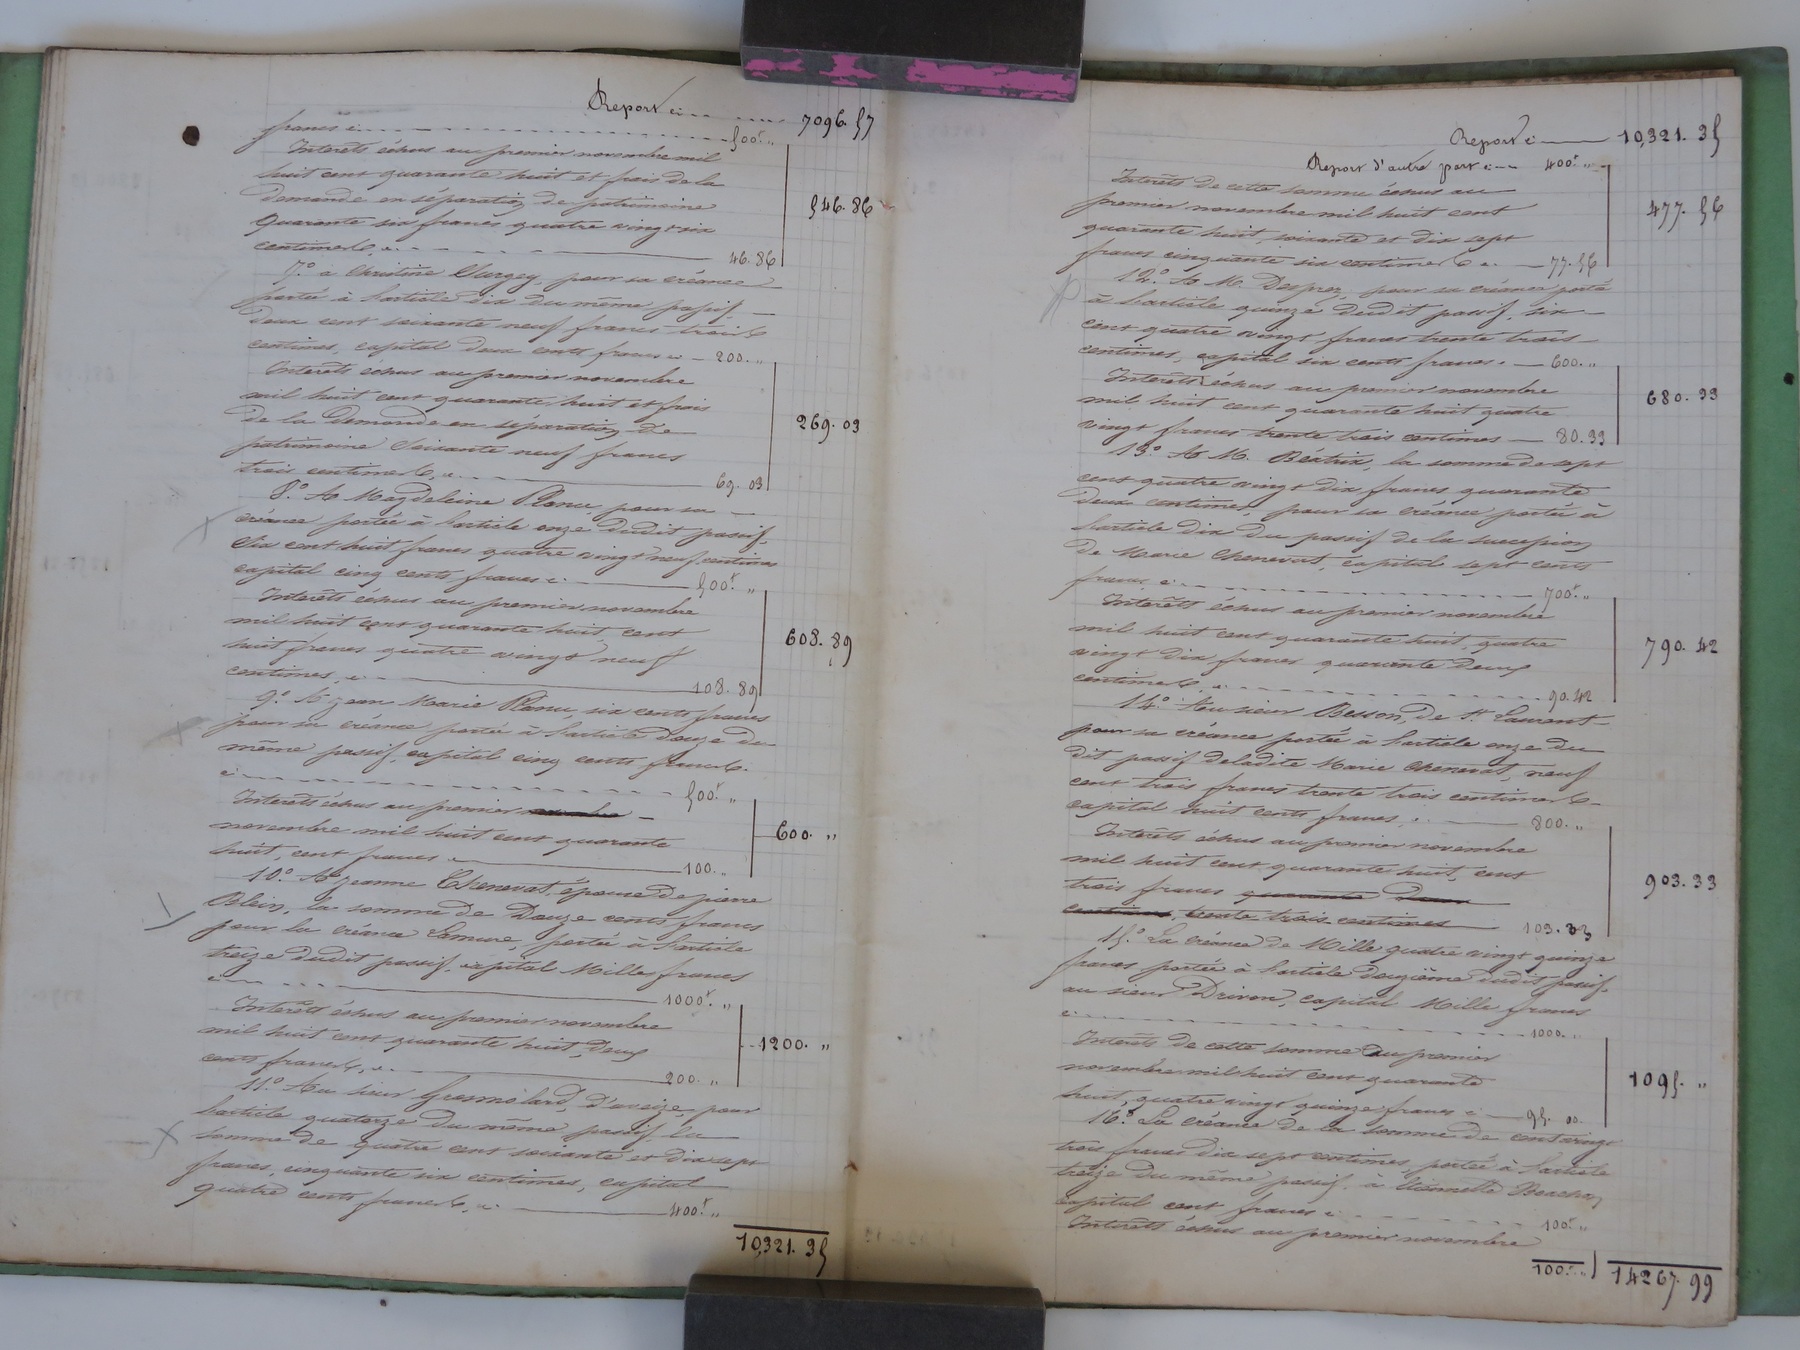 Report ci 7096. 57
francs ci 500f "
Intérêts échus au premier novembre mil
huit cent quarante huit et frais de la
Demande en séparation de patrimoine
quarante six francs quatre vingt six 546. 86
centimes, ci 46. 86
7.° à Christine Clurgey, pour sa créance
portée à l'article dix du même passif,
Deux cent soixante neuf francs trois
centimes, capital deux cents francs ci 200. "
Intérêts échus au premier novembre
mil huit cent quarante huit et frais
de la Demande en séparation de 269. 03
patrimoine soixante neuf francs
trois centimes, ci 69. 03
8.° A Magdeleine Planu, pour sa
créance portée à l'article onze dudit passif,
Six cent huit francs quatre vingt neuf centimes
capital cinq cents francs ci 500f "
Intérêts échus au premier novembre
mil huit cent quarante huit, cent 608. 89
huit francs quatre vingt neuf
centimes, ci 108. 89
9.° A Jean Marie Planu, six cents francs
pour sa créance portée à l'article douze du
même passif, capital cinq cents francs.
ci 500f "
Intérêts échus au premier
novembre mil huit cent quarante 600. "
huit, cent francs 100. "
10.° A Jeanne Chenevat, épouse de pierre
Blein, la somme de Douze cents francs
pour la créance Lemure, portée à l'article
treize dudit passif, capital Mille francs
ci 1000f "
Intérêts échus au premier novembre
mil huit cent quarante huit, Deux 1200. "
cents francs, ci 200. "
11.° Au sieur Gresmolard, d'aveize, pour
l'article quatorze du même passif la
somme de quatre cent soixante et dix sept
francs, cinquante six centimes, capital
quatre cents francs, ci 400f "
10,321. 35
Report ci 10,321. 35
Report d'autre part ci 400f "
Intérêts de cette somme échus au
premier novembre mil huit cent 477. 56
quarante huit, soixante et dix sept
francs cinquante six centimes ci 77. 56
12.° A M. Desprez, pour sa créance portée
à l'article quinze dudit passif, six
cent quatre vingt francs trente trois
centimes, capital six cents francs. 600. "
Intérêts échus au premier novembre
mil huit cent quarante huit quatre 680. 33
vingt francs trente trois centimes 80. 33
13.° A M. Béatrix, la somme de sept
cent quatre vingt dix francs quarante
deux centimes, pour sa créance portée à
l'article dix du passif de la succession
de Marie Chenevat, capital sept cents
francs ci 700f "
Intérêts échus au premier novembre
mil huit cent quarante huit, quatre
vingt dix francs quarante deux 790. 42
centimes, ci 90. 42
14.° Au sieur Besson, de St Laurent
pour sa créance portée à l'article onze du
dit passif de ladite Marie Chenevat, neuf
cent trois francs trente trois centimes
capital huit cents francs, ci 800. "
Intérêts échus au premier novembre
mil huit cent quarante huit, cent
trois francs quarante deux 903. 33
centimes, trente trois centimes 103. 33
15.° La créance de Mille quatre vingt quinze
francs portée à l'article douzième dudit passif
au sieur Drivon, capital Mille francs
ci 1000. "
Intérêts de cette somme au premier
novembre mil huit cent quarante 1095. "
huit, quatre vingt quinze francs ci 95. 00
16.° La créance de la somme de cent vingt
trois francs dix sept centimes, portée à l'article
treize du même passif, à Etiennette
capital cent francs ci 100f "
Intérêts échus au premier novembre
100. " 14267. 99